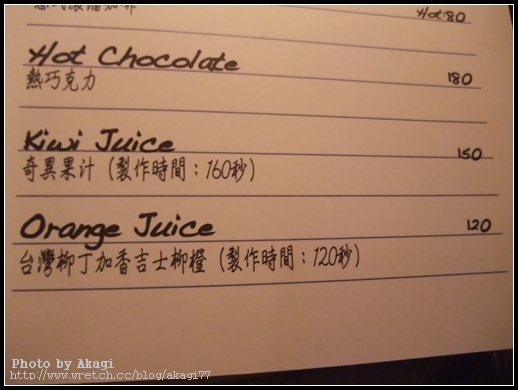 Hot:80
Hot Chocolate 180
熱巧克力
Kiwi Juice 150
奇異果汁 (製作時間：160秒)
Orange Juice 120
台灣柳丁加香吉士柳橙 (製作時間：120秒)
Photo by Akagi
http://www.wretch.cc/blog/akagi77